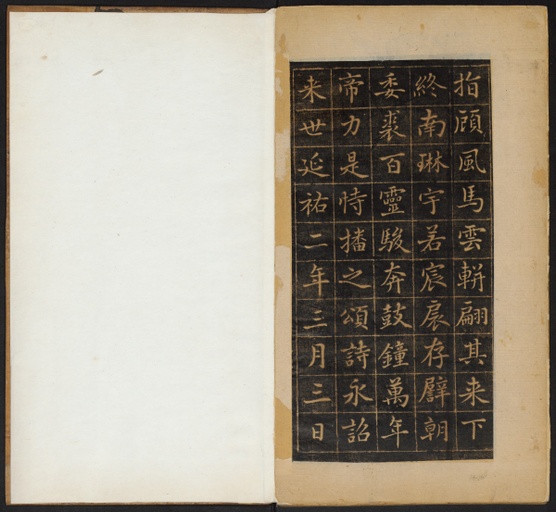 指顧風馬雲軿翩其来下
終南琳宇若宸扆存辟朝
委裘百靈駿奔鼓鐘萬年
帝力是恃播之頌詩永詔
来世延祐二年三月三日